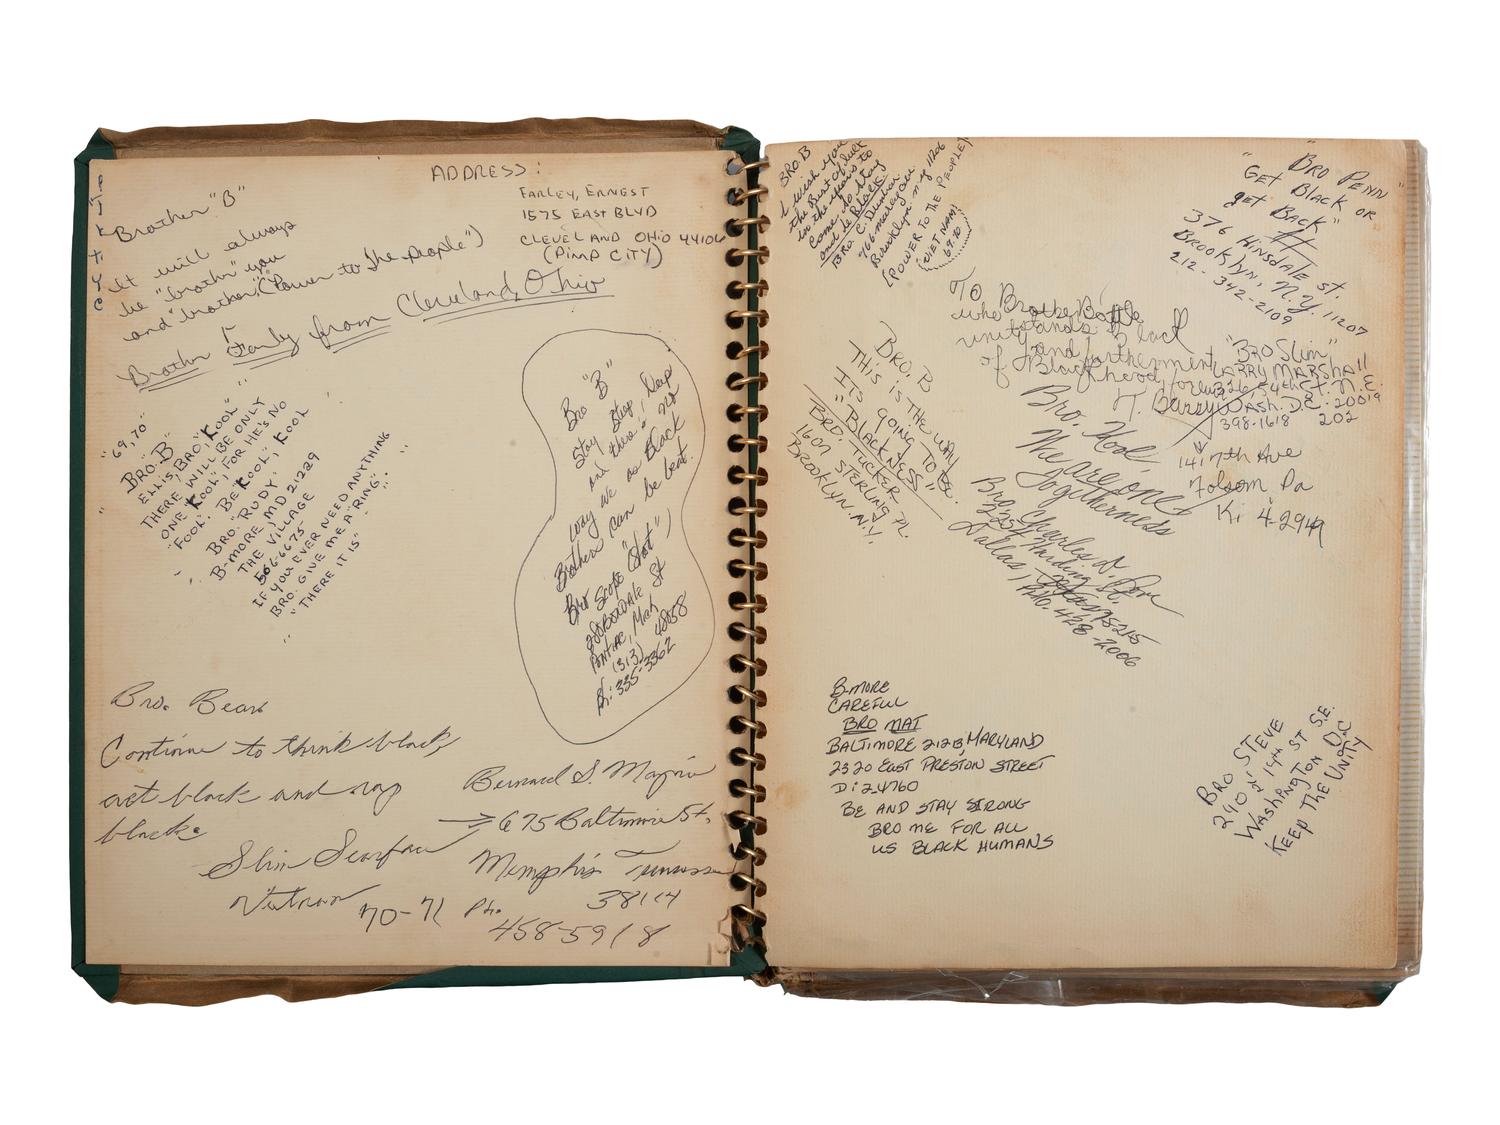 ADDRESS:
FARLEY, ERNEST
1575 EAST BLVD
CLEVELAND OHIO 44106
(PIMP CITY)
Brother "B"
It will always
be "brother" you
and "brother", (Power to the people")
Brother Farly from Cleveland, Ohio
"69, 70"
BRO. B"
ELLIS, BRO, "KOOL"
THERE WILL BE ONLY
ONE KOOL", FOR HE'S NO
"FOOL". BE KOOL", KOOL
BRO. "RUDY"
B-MORE, MD 21229
THE VILLAGE
566-6675
IF YOU EVER NEED ANYTHING
BRO. GIVE ME A "RING".
"THERE IT IS"
Bro "B"
Stay Black
and there's no
way we as Black
Brothers can be beat.
Bro Scope "Shot"
Pontiac, Mich 48058
(313)
Ph: 335-3362
Bro. Bear
Continue to think black,
act black and say
black.
Slim Scarface
Vietnam 70-71
Bernard S.
675 Baltimore St.
Memphis Tennessee
38114
Ph. 458-5918
BRO. B
I wish you
the Best of luck
in the years to
Come. So Stay
and be Black.
BRO. C. Dunbar
Brooklyn N.Y 11206
(POWER TO THE PEOPLE)
(VIET NAM)
69.70
"BRO PENN"
"GET BLACK OR
GET BACK"
376 HINSDALE St.
BROOKLYN, N.Y. 11207
212-342-2109
To Brother Bottle
who understands Black
unity and
of Blackhood forever
T. Barry
1417th Ave
Folsom, Pa
Ki 4-2949
"BRO SLIM"
LARRY MARSHALL
WASH. D.C. 20019
398-1618 202
BRO. B
THIS IS THE WAY
IT'S GOING TO BE.
"BLACKNESS"
BRO. TUCKER
1609 STERLING PL
BROOKLYN. N.Y.
Bro. Kool,
We are one
Togetherness
Bro. Charles
Dallas, Texas 75215
428-2006
B-MORE
CAREFUL
BRO MAT
BALTIMORE 21213, MARYLAND
2320 EAST PRESTON STREET
Di 2-4760
BE AND STAY STRONG
BRO ME FOR ALL
US BLACK HUMANS
BRO STEVE
2410 14th ST S.E.
WASHINGTON D.C
KEEP THE UNITY